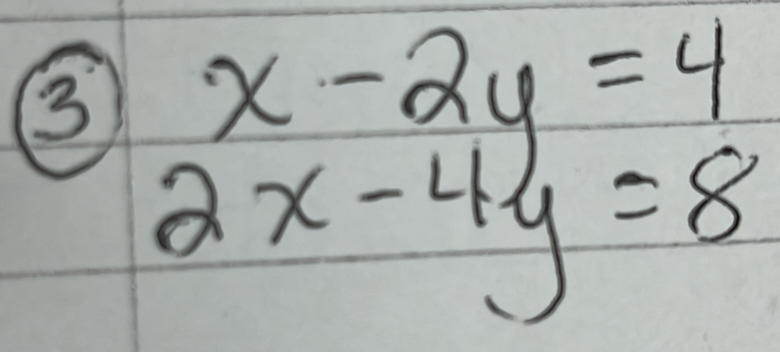 ③ x - 2y = 4
2x - 4y = 8